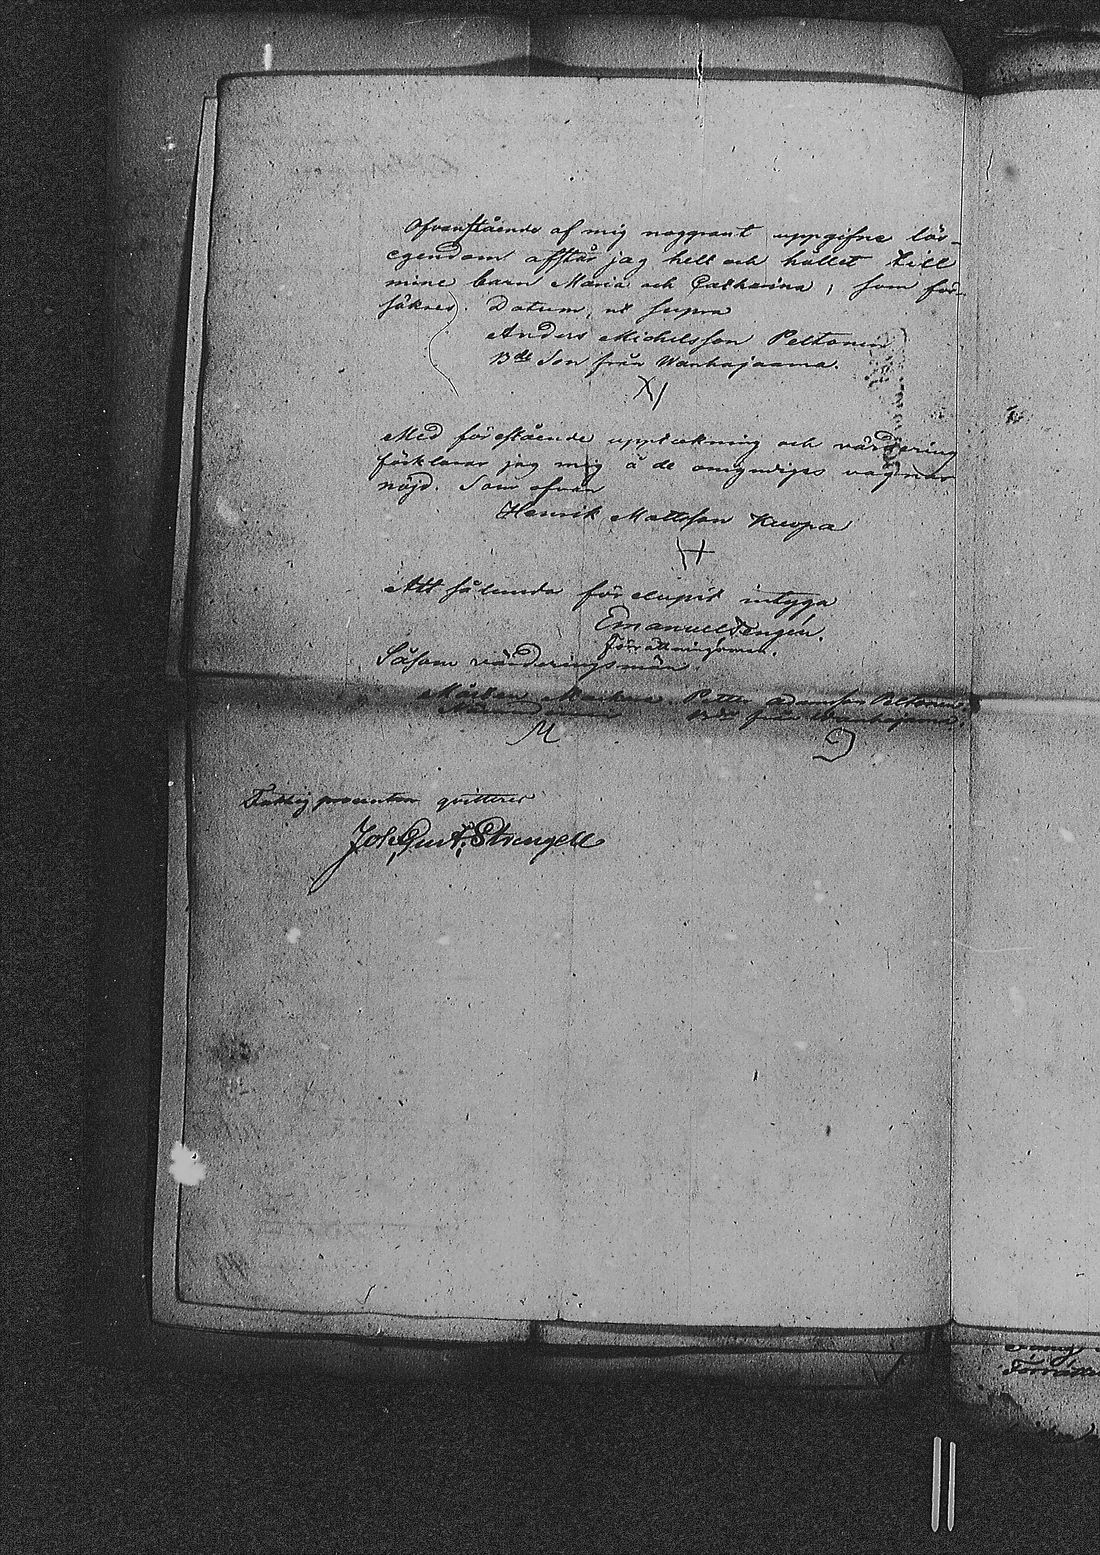 Ofvanstående af mig noggrant uppgifne lös-
egendom afstår jag helt och hållet till
mine barn Maria och Catharina, som för-
säkras. Datum, ut supra
Anders Michelsson Peltonen
Bde Son från Wanhajaama.
Med förestående uppteckning och värdering
förklarar jag mig å de omyndiges vägnar
nöjd. Som ofvan
Henrik Mattsson Kuopa
Att sålunda förelupit intyga
Emanuel Tengén.
Förrättningsman.
Såsom värderingsmän
Petter Adamsson Peltonen
Bde från Wanhajaama.
M
Fattig procenten qvitteras
Joh. Gust. Strengell